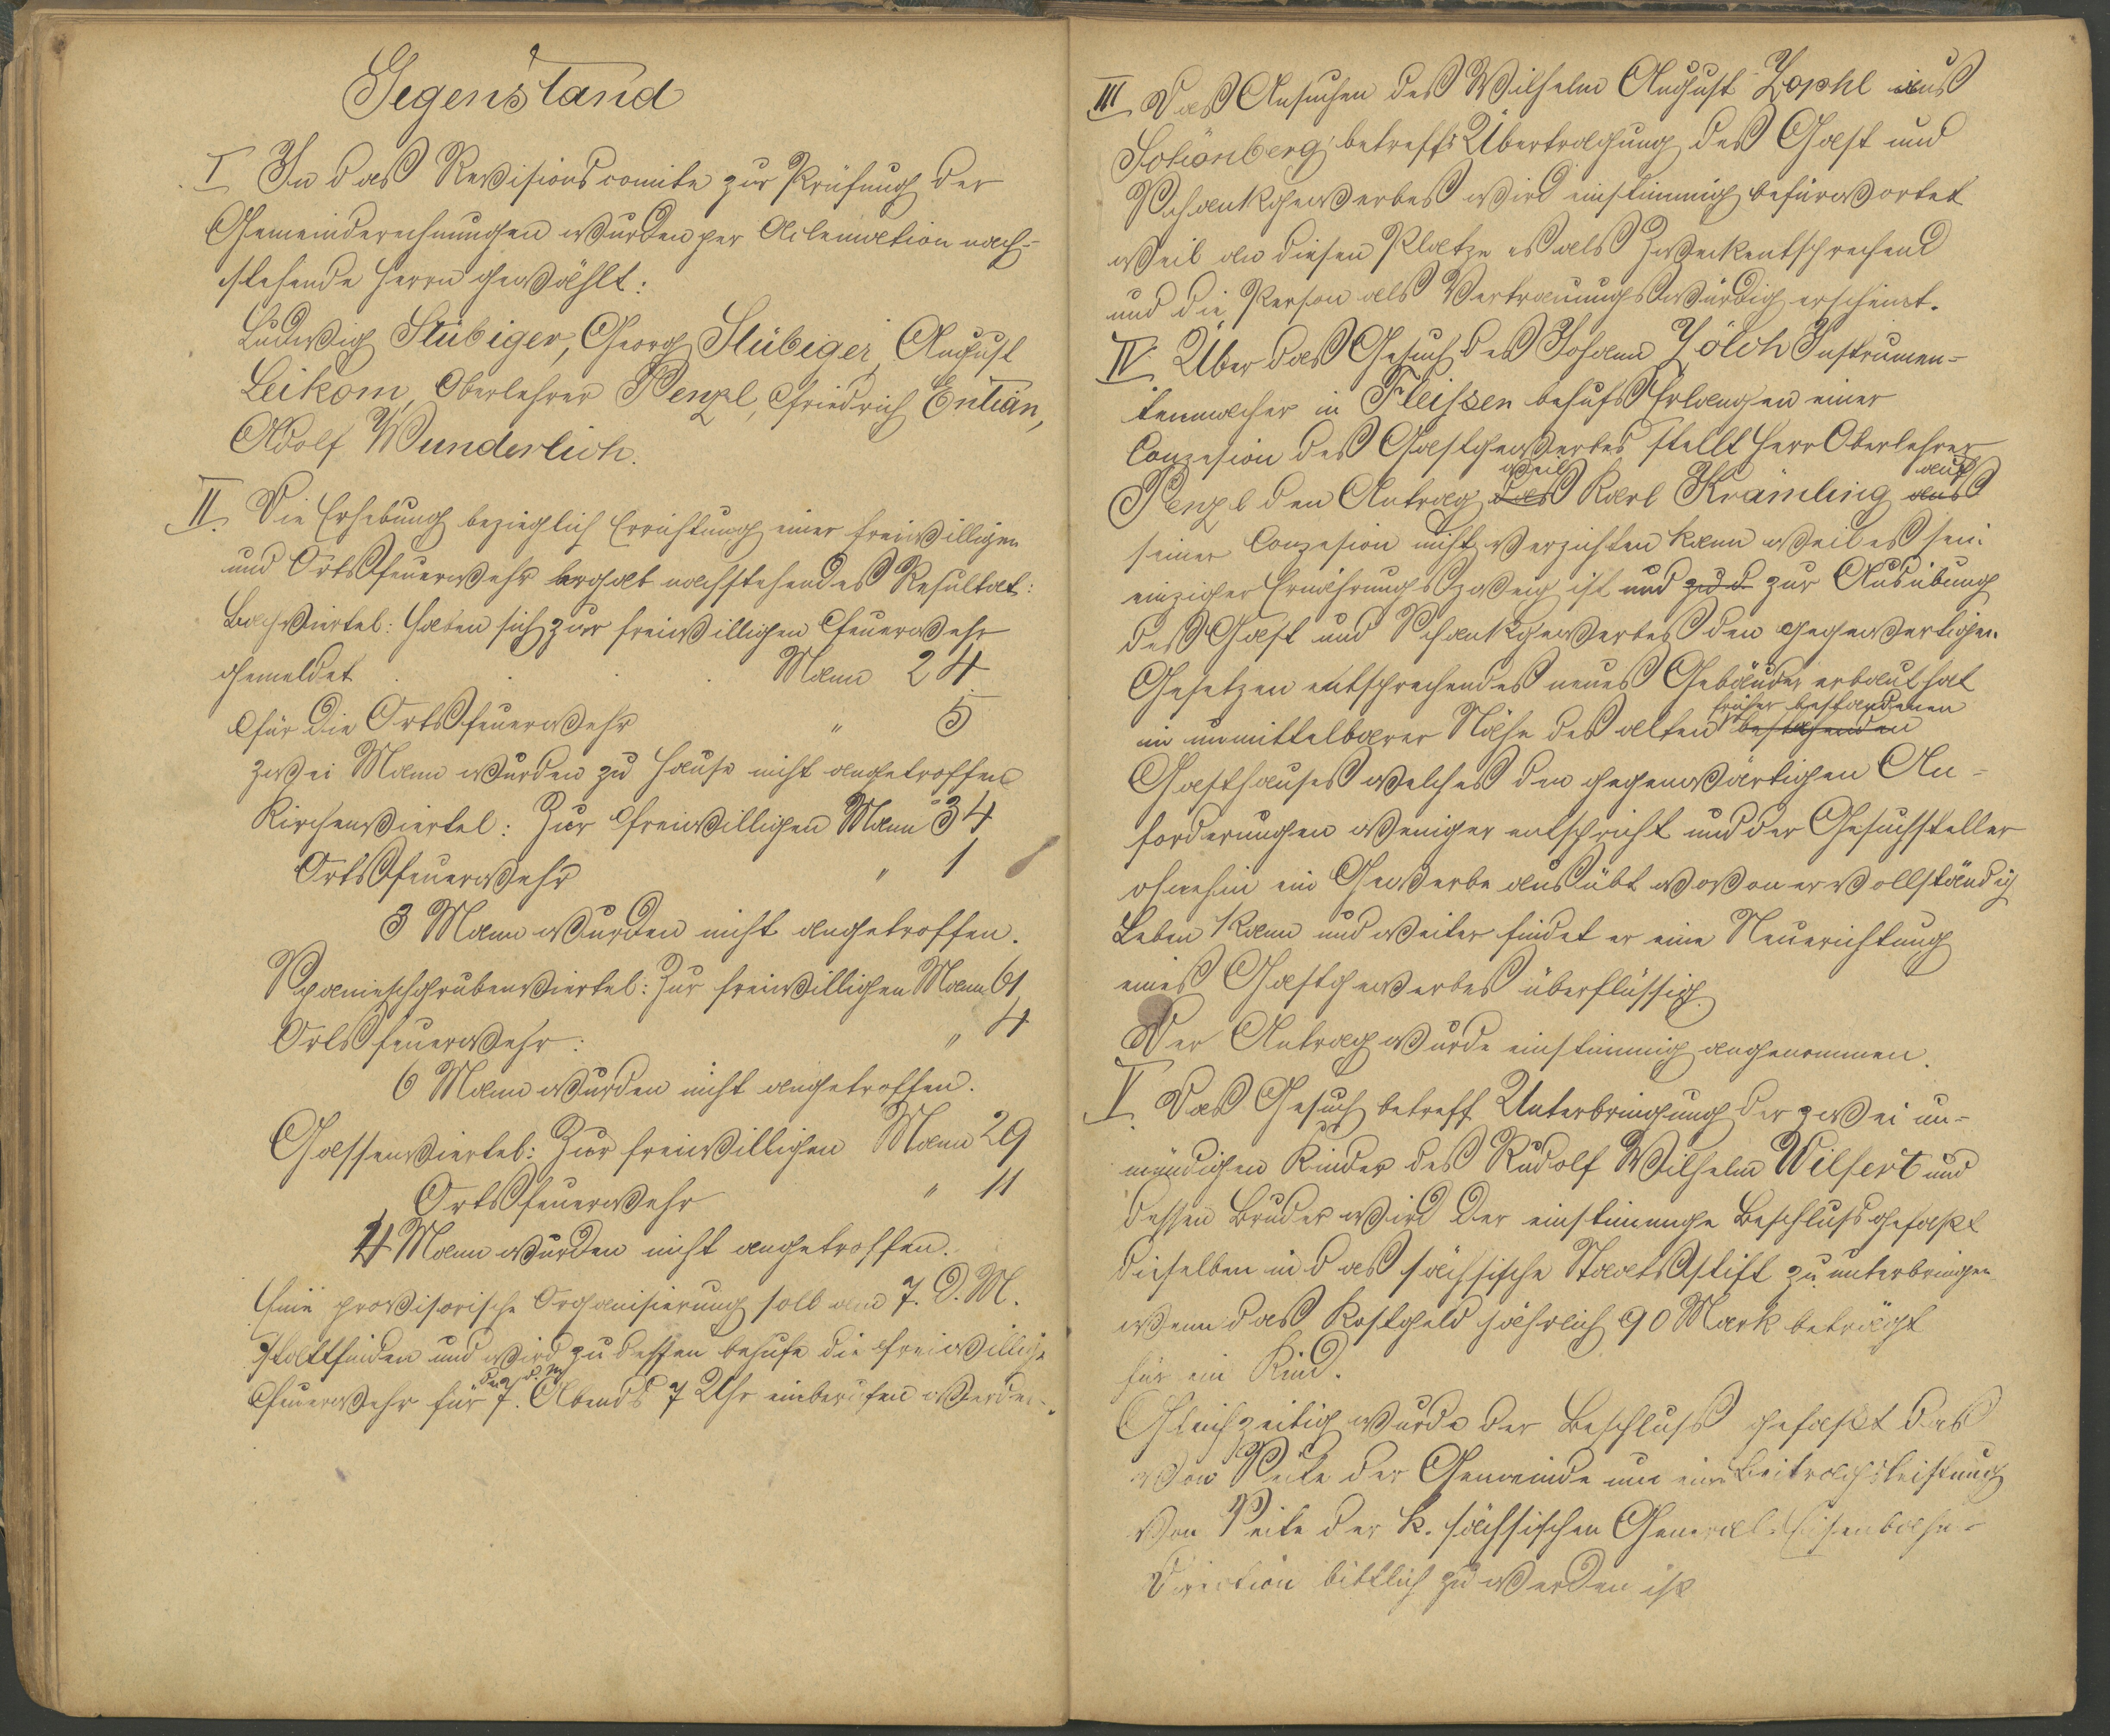 Gegenstand
I In das Revisionscomite zur Prüfung der
Gemeinderechnungen wurden per Aclemation nach-
stehende Herrn gewählt:
Ludwig Stübiger, Georg Stübiger, August
Leikom, Oberlehrer Penzl, Friedrich Entian,
Adolf Wunderlich.
II. Die Erhebung bezieglich Errichtung einer freiwilligen
und Ortsfeuerwehr ergab nachstehendes Resultat:
Bachviertel: Haben sich zur freiwilligen Feuerwehr
gemeldet . . . . Mann 24
für die Ortsfeuerwehr " 5
zwei Mann wurden zu Hause nicht angetroffen
Kirchenviertel: Zur freiwilligen Mann 34
Ortsfeuerwehr " 1
3 Mann wurden nicht angetroffen.
Spanieschgrubenviertel: Zur freiwilligen Mann 61
Ortsfeuerwehr: " 4
6 Mann wurden nicht angetroffen.
Gassenviertel: Zur freiwilligen Mann 29
Ortsfeuerwehr " 11
4 Mann wurden nicht angetroffen.
Eine provisorische Organisierung soll am 7. d. M.
stattfinden und wird zu dessen behufe die freiwillige
Feuerwehr für den 7. d. M. Abends 7 Uhr einberufen werden.
III Das Ansuchen des Wilhelm August Zophl aus
Schönberg betreffs Übertragung des Gast und
Schankgewerbes wird einstimmig befürwortet
weil an diesen Platze es als Zweckentsprechend
und die Person als Vertrauungswürdig erscheint.
IV. Über das Gesuch des Johann Jölch Instrumen-
tenmacher in Fleissen behufs Erlangen einer
Conzesion des Gastgewerbes stellt Herr Oberlehrer
Penzl den Antrag das weil Karl Krämling aus auf
seiner Conzesion nicht verzichten kann weil es sein
einziger Ernährungszweig ist und zu d. zur Ausübung
des Gast und Schankgewerbes den gegewertigen
Gesetzen entsprechendes neues Gebäude erbaut hat
in unmittelbarer Nähe des alten bestehenden früher bestandenen
Gasthauses welches den gegenwärtigen An-
forderungen weniger entspricht und der Gesuchsteller
ohnehin ein Gewerbe ausübt wovon er vollständig
Leben kann und weiter findet er eine Neuerichtung
eines Gastgewerbes überflüssig.
Der Antrag wurde einstimmig angenommen.
V. Das Gesuch betreff Unterbringung der zwei un-
mündigen Kinder des Rudolf Wilhelm Wilfert und
dessen Bruder wird der einstimmge Beschluss gefaßt
dieselben in das sächsische Staatsstift zu unterbringen
wenn das Kostgeld jährlich 90 Mark beträgt
für ein Kind.
Gleichzeitig wurde der Beschluss gefaßt das
von Seite der Gemeinde um eine Beitragsleistung
von Seite der k. sächsischen General-Eisenbahn-
Direction bittlich zu werden ist